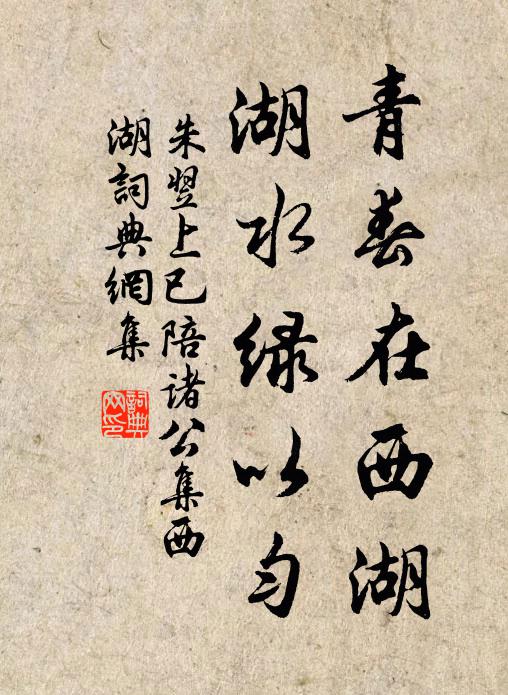 青春在西湖
湖水綠以勻
朱翌上巳陪諸公集西
湖詞典網集
詞典網印